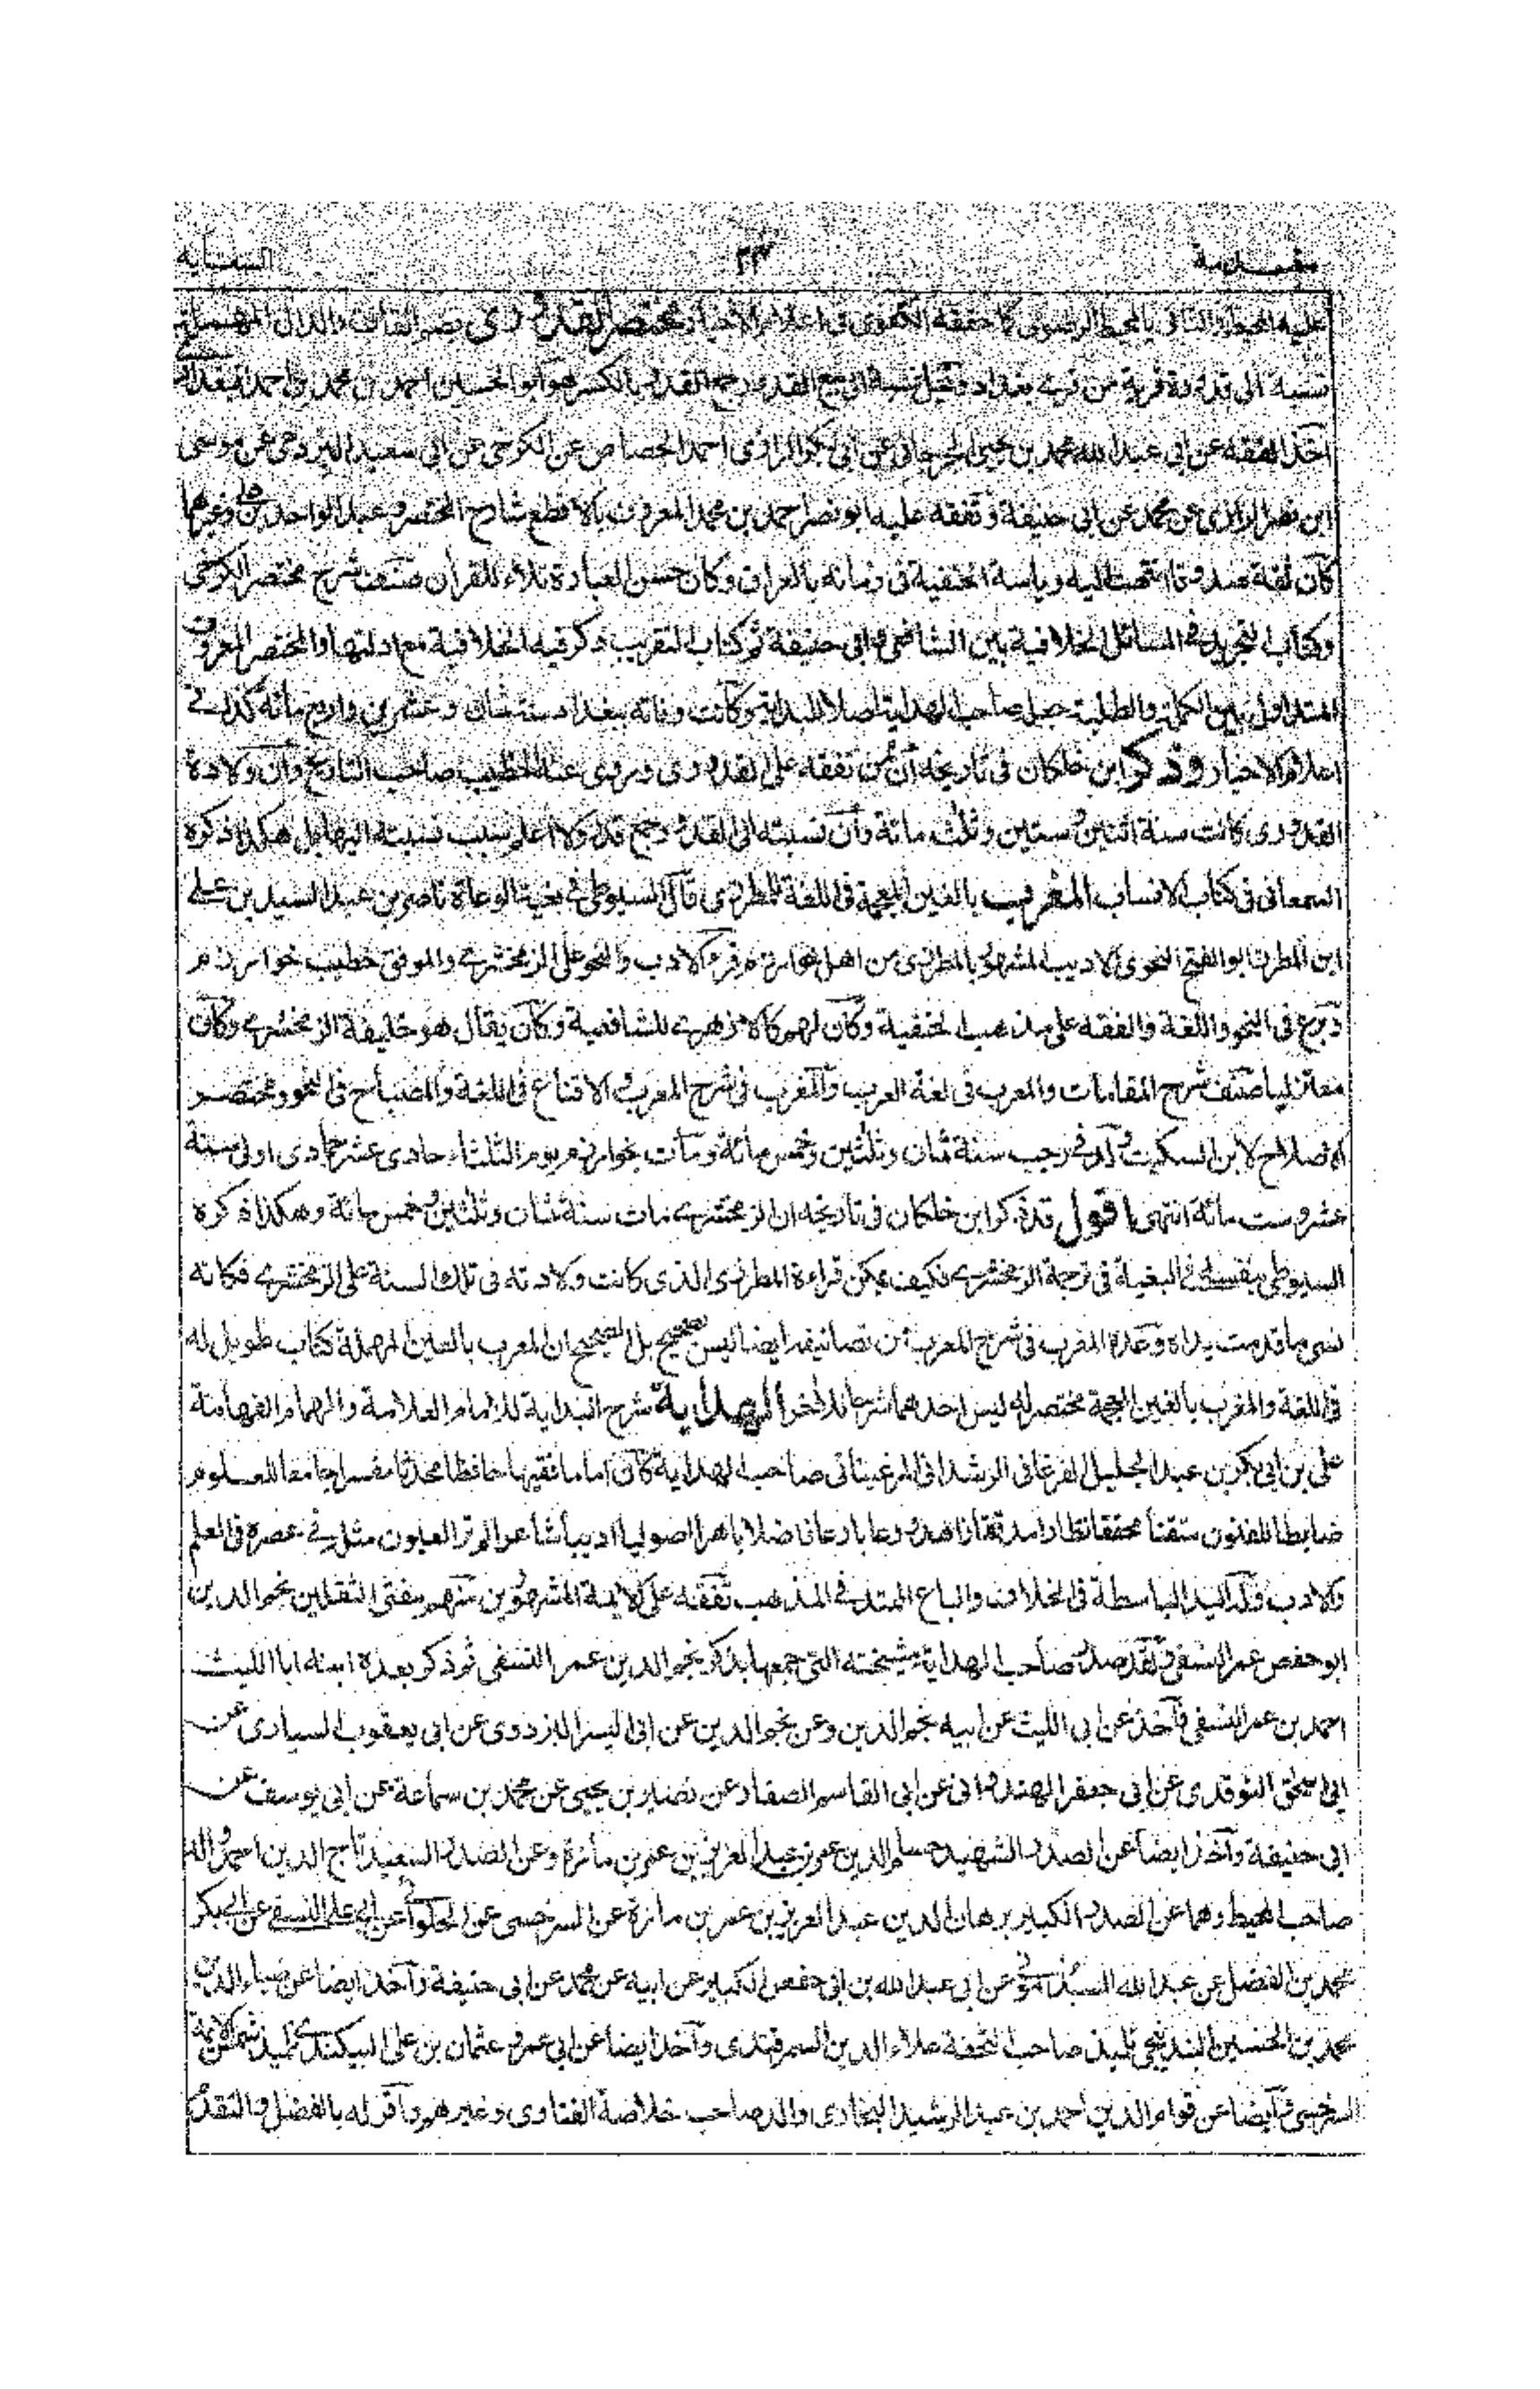 مقدمة ٢٣ السعاية
عليه المحيط والثاني بالمحيط الرضوي كما حققه الكفوي في اعلام الاخيار مختصر القدوري بضم القاف والدال المهملة
نسبة الى قدورة قرية من قرى بغداد وقيل نسبة الى بيع القدور جمع القدر بالكسر هو ابو الحسين احمد بن محمد بن احمد البغدادي
اخذ الفقه عن ابي عبد الله محمد بن يحيى الجرجاني عن ابي بكر الرازي احمد الجصاص عن الكرخي عن ابي سعيد البردعي عن موسى
ابن نصر الرازي عن محمد عن ابي حنيفة وتفقه عليه ابو نصر احمد بن محمد المعروف بالاقطع شارح المختصر وعبد الواحد بن علي وغيرهما
كان ثقة صدوقا انتهت اليه رياسة الحنفية في زمانه بالعراق وكان حسن العبادة تلاء للقرأن صنف شرح مختصر الكرخي
وكتاب التجريد في المسائل الخلافية بين الشافعي وابي حنيفة ثم كتاب التقريب ذكر فيه الخلافية مع ادلتها والمختصر المعروف
المتداول بين الكملة والطلبة جعل صاحب الهداية اصلا للبداية وكانت وفاته ببغداد سنة ثمان وعشرين واربع مائة كذا في
اعلام الاخيار وذكر ابن خلكان في تاريخه ان ممن تفقه على القدوري وروى عنه الخطيب صاحب التاريخ وان ولادة
القدوري كانت سنة اثنين وستين وثلث مائة وان نسبته الى القدور جمع قدر ولا اعلم سبب نسبته اليها بل هكذا ذكره
السمعاني في كتاب الانساب المغرب بالغين المعجمة في اللغة للمطرزي قال السيوطي في بغية الوعاة ناصر بن عبد السيد بن علي
ابن المطرز ابو الفتح النحوي الاديب المشهور بالمطرزي من اهل خوارزم قرء الادب والنحو على الزمخشري والموفق خطيب خوارزم
وبرع في النحو واللغة والفقه على مذهب الحنفية وكان لهم كالازهري للشافعية وكان يقال هو خليفة الزمخشري وكان
معتزليا صنف شرح المقامات والمعرب في لغة العرب والمغرب في شرح المعرب والاقناع في اللغة والمصباح في النحو ومختصر
الاصلاح لابن السكيت ولد في رجب سنة ثمان وثلثين وخمس مائة ومات بخوارزم يوم الثلثاء حادي عشر جمادي اولى سنة
عشر وست مائة انتهى اقول قد ذكر ابن خلكان في تاريخه ان الزمخشري مات سنة ثمان وثلثين وخمس مائة وهكذا ذكره
السيوطي بنفسه في البغية في ترجمة الزمخشري فكيف يمكن قراءة المطرزي الذي كانت ولادته في تلك السنة على الزمخشري فكانه
نسي ما قدمت يداه وعده المغرب في شرح المعرب من تصانيفه ايضا ليس بصحيح بل الصحيح ان المعرب بالعين المهملة كتاب طويل له
في اللغة والمغرب بالغين المعجمة مختصر له ليس احدهما شرحا للاخر الهداية شرح البداية للامام العلامة والهمام الفهامة
علي بن ابي بكر بن عبد الجليل الفرغاني الرشداني المرغيناني صاحب الهداية كان اماما فقيها حافظا محدثا مفسرا جامعا للعلوم
ضابطا للفنون متقنا محققا نظارا مدققا زاهدا ورعا بارعا فاضلا باهرا اصوليا اديبا شاعرا لم تر العيون مثله في عصره في العلم
والادب وله اليد الباسطة في الخلاف والباع الممتد في المذهب تفقه على الائمة المشهورين منهم مفتي الثقلين نجم الدين
ابو حفص عمر النسفي وقد صدر صاحب الهداية مشيخته التي جمعها بذكر نجم الدين عمر النسفي ثم ذكر بعده ابنه ابا الليث
احمد بن عمر النسفي فاخذ عن ابي الليث عن ابيه نجم الدين وعن نجم الدين عن ابي اليسر البزدوي عن ابي يعقوب السياري عن
ابي اسحق النوقدي عن ابي جعفر الهندواني عن ابي القاسم الصفار عن نصير بن يحيى عن محمد بن سماعة عن ابي يوسف عن
ابي حنيفة واخذ ايضا عن الصدر الشهيد حسام الدين عمر بن عبد العزيز بن عمر بن مازة وعن الصدر السعيد تاج الدين احمد والد
صاحب المحيط وهما عن الصدر الكبير برهان الدين عبد العزيز بن عمر بن مازة عن السرخسي عن الحلوائي عن ابي علي النسفي عن ابي بكر
محمد بن الفضل عن عبد الله السبذموني عن ابي عبد الله بن ابي حفص الكبير عن ابيه عن محمد عن ابي حنيفة واخذ ايضا عن ضياء الدين
محمد بن الحسين البندنيجي تلميذ صاحب التحفة علاء الدين السمرقندي واخذ ايضا عن ابي عمرو عثمان بن علي البيكندي تلميذ شمس الائمة
السرخسي وايضا عن قوام الدين احمد بن عبد الرشيد البخاري والد صاحب خلاصة الفتاوى وغيرهم واقر له بالفضل والتقدم